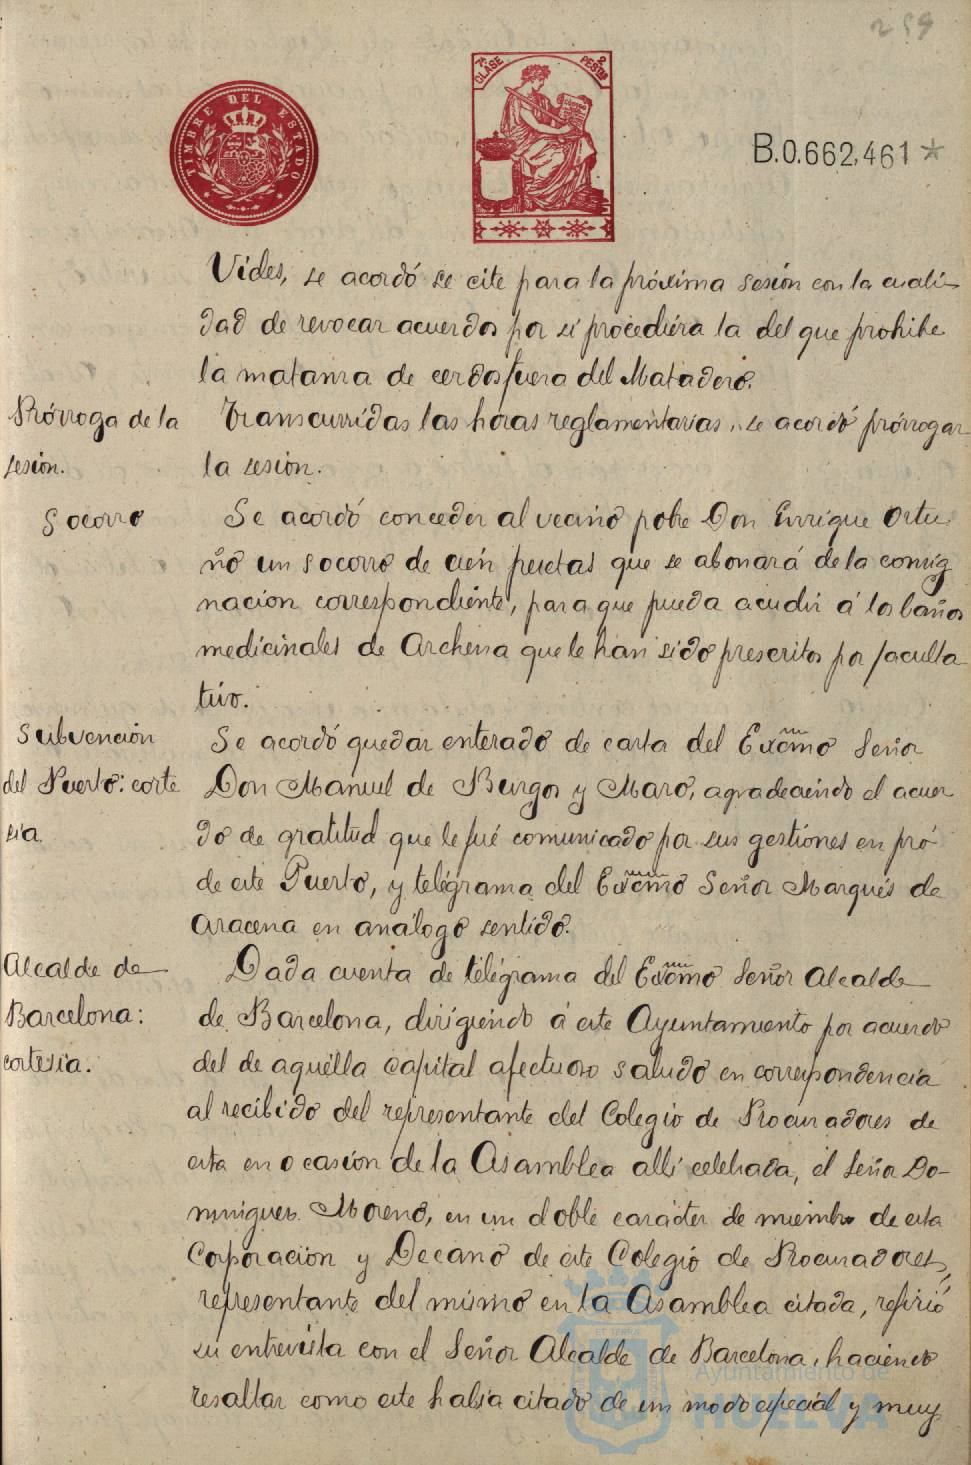 259
TIMBRE DEL ESTADO
7ª CLASE
2 PESTAS
B.0.662,461*
Vides, se acordó se cite para la próxima sesión con la cuali-
dad de revocar acuerdos por si procediera la del que prohibe
la matanza de cerdos fuera del Matadero.
Prórroga de la
sesión.
Transcurridas las horas reglamentarias, se acordó prórrogar
la sesión.
Socorro
Se acordó conceder al vecino pobre Don Enrique Ortu
ño un socorro de cien pesetas que se abonará de la consig
nacion correspondiente, para que pueda acudir á los baños
medicinales de Archena que le han sido prescritos por faculta
tivo.
Subvención
del Puerto: corte
sia.
Se acordó quedar enterado de carta del Excmo Señor
Don Manuel de Burgos y Mazo, agradeciendo el acuer
do de gratitud que le fué comunicado por sus gestiones en pró
de este Puerto, y telégrama del Excmo Señor Marqués de
Aracena en análogo sentido.
Alcalde de
Barcelona:
cortesia.
Dada cuenta de telégrama del Excmo Señor Alcalde
de Barcelona, dirigiendo á este Ayuntamiento por acuerdo
del de aquélla Capital afectuoso saludo en correspondencia
al recibido del representante del Colegio de Procuradores de
esta en ocasión de la Asamblea alli celebrada, el Señor Do-
minguez Moreno, en un doble carácter de miembro de esta
Corporación y Decano de este Colegio de Procuradores,
representante del mismo en la Asamblea citada, refirió
su entrevista con el Señor Alcalde de Barcelona, haciendo
resaltar como este habia citado de un modo especial y muy
Ayuntamiento de
HUELVA